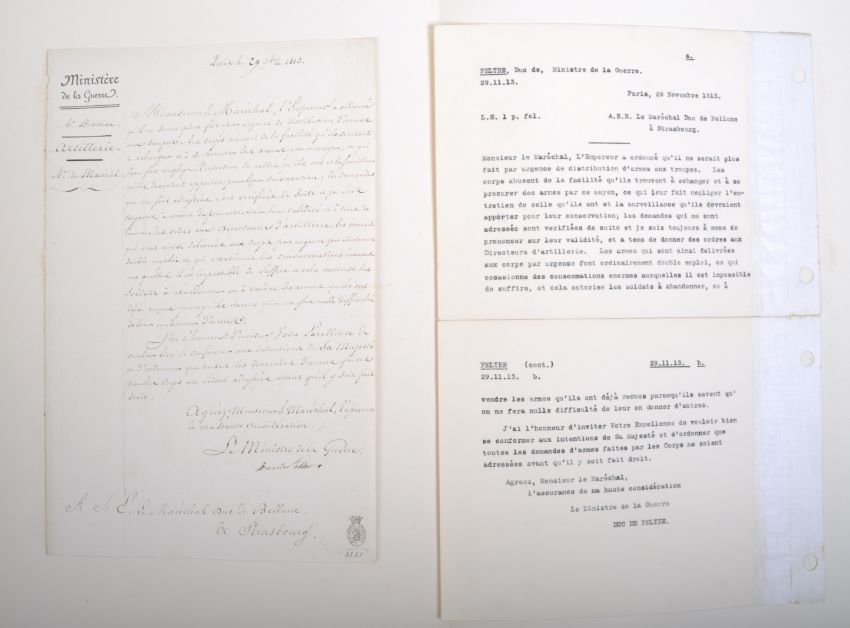 Paris le 29 9bre 1813.
Ministère
de la Guerre.
6e Division
Artillerie.
Bau du Matériel
Monsieur le Maréchal, l'Empereur a ordonné
qu'il ne serait plus fait par urgence de distribution d'armes
aux troupes. Les corps abusent de la facilité qu'ils trouvent
à échanger et à se procurer des armes par ce moyen, ce qui
leur fait négliger l'entretien de celles qu'ils ont et la surveillance
qu'ils devraient apporter pour leur conservation; les demandes
qui me sont adressées sont vérifiées de suite et je suis
toujours à même de prononcer sur leur validité, et à tems de
donner des ordres aux Directeurs d'artillerie. Les armes
qui sont ainsi délivrées aux corps par urgence font ordinairement
double emploi, ce qui occasionne des consommations énormes
auxquelles il est impossible de suffire, et cela autorise les
soldats à abandonner, ou à vendre les armes qu'ils ont
déjà reçues parcequ'ils savent qu'on ne fera nulle difficulté
de leur en donner d'autres.
J'ai l'honneur d'inviter Votre Excellence de
vouloir bien se conformer aux intentions de Sa Majesté
et d'ordonner que toutes les demandes d'armes faites
par les Corps me soient adressées avant qu'il y soit fait
droit.
Agréez, Monsieur le Maréchal, l'assurance
de ma haute considération.
Le Ministre de la Guerre.
Duc de Feltre
A S. E. Le Maréchal Duc de Bellune
à Strasbourg.
a.
FELTRE, Duc de, Ministre de la Guerre.
29.11.13.
Paris, 29 Novembre 1813.
L.S. 1 p. fol.
A.S.E. Le Maréchal Duc de Bellune
à Strasbourg.
Monsieur le Maréchal, L'Empereur a ordonné qu'il ne serait plus
fait par urgence de distribution d'armes aux troupes. Les
corps abusent de la facilité qu'ils trouvent à échanger et à se
procurer des armes par ce moyen, ce qui leur fait negliger l'en-
tretien de celle qu'ils ont et la surveillance qu'ils devraient
apporter pour leur conservation; les demandes qui me sont
adressés sont verifiées de suite et je suis toujours à meme de
prononcer sur leur validité, et a tems de donner des ordres aux
Directeurs d'artillerie. Les armes qui sont ainsi delivrées
aux corps par urgence font ordinairement double emploi, ce qui
occasionne des consommations enormes auxquelles il est impossible
de suffire, et cela autorise les soldats à abandonner, ou à
FELTRE (cont.) 29.11.13. b.
29.11.13. b.
vendre les armes qu'ils ont déjà recues parcequ'ils savent qu'
on ne fera nulle difficulté de leur en donner d'autres.
J'ai l'honneur d'inviter Votre Excellence de vouloir bien
se conformer aux intentions de Sa Majesté et d'ordonner que
toutes les demandes d'armes faites par les Corps me soient
adressées avant qu'il y soit fait droit.
Agreez, Monsieur le Maréchal,
l'assurance de ma haute considération
Le Ministre de la Guerre
DUC DE FELTRE.